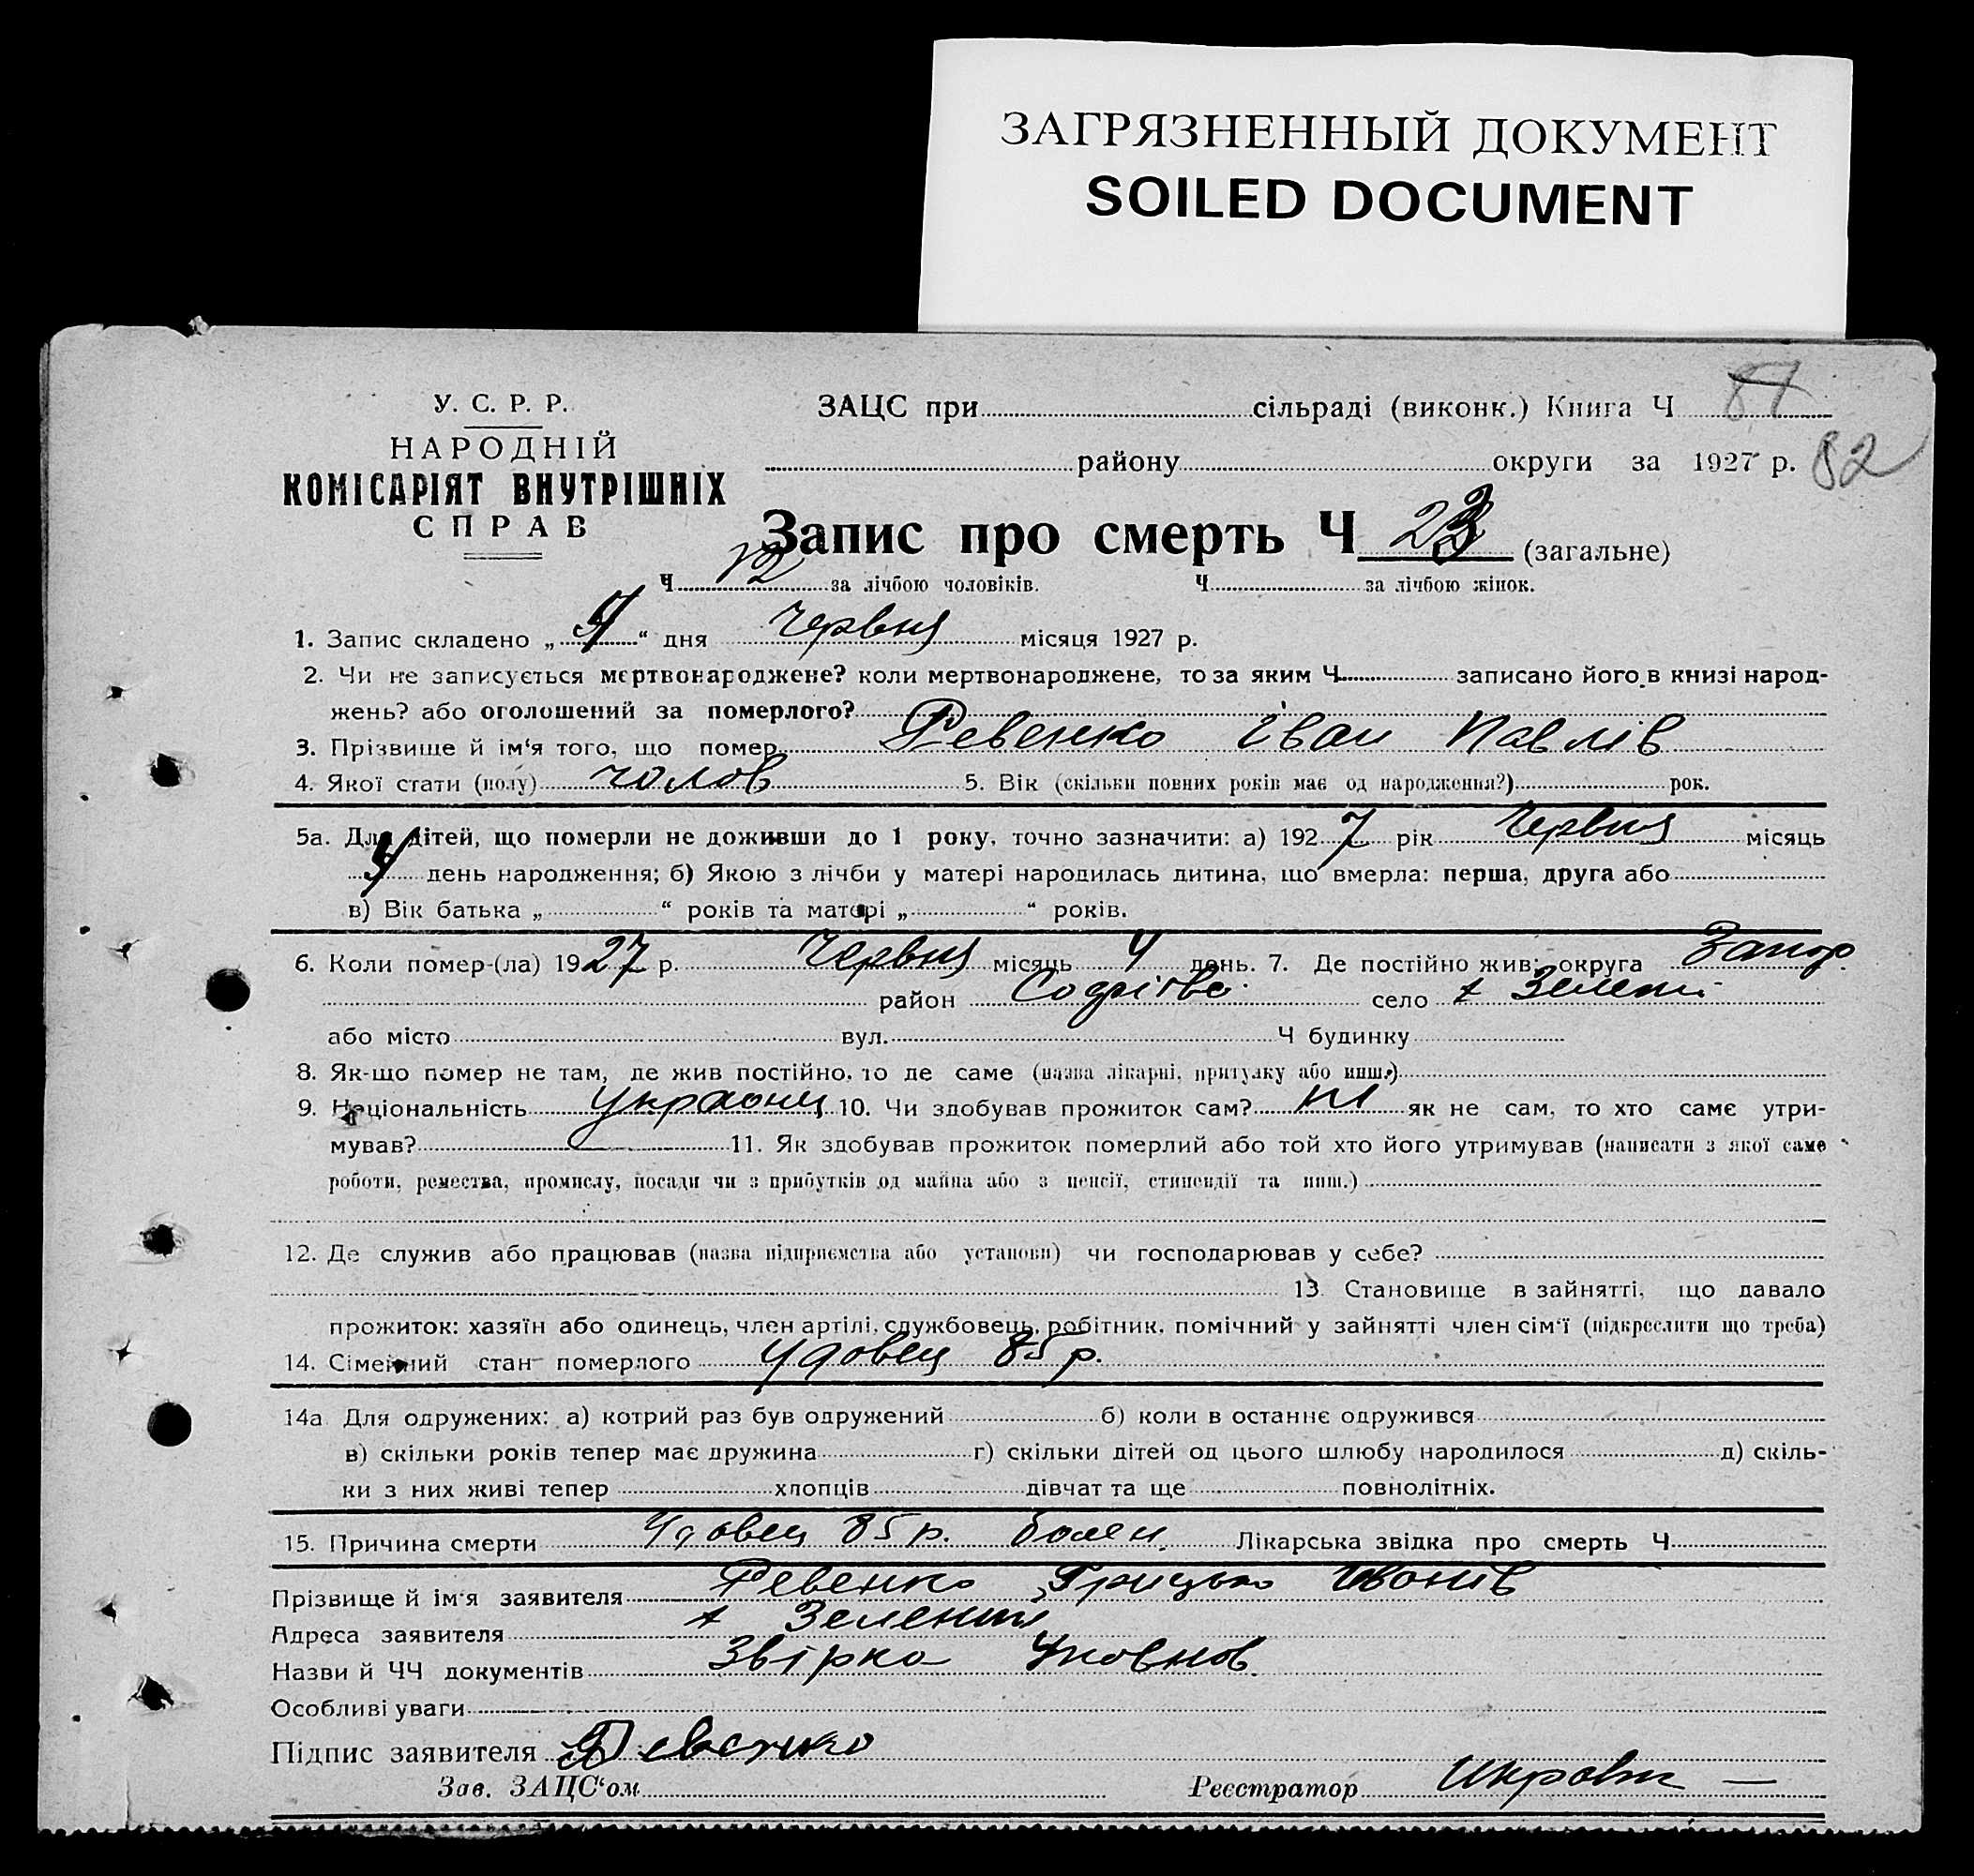 ЗАГРЯЗНЕННЫЙ ДОКУМЕНТ
SOILED DOCUMENT
У. С. Р. Р.
НАРОДНІЙ
КОМІСАРІЯТ ВНУТРІШНІХ
СПРАВ
ЗАЦС при сільраді (виконк.) Книга Ч
району округи за 1927 р. 82
Запис про смерть Ч 23 (загальне)
Ч 12 за лічбою чоловіків. Ч за лічбою жінок.
1. Запис складено „ “ дня Червня місяця 1927 р.
2. Чи не записується мертвонароджене? коли мертвонароджене, то за яким Ч записано його в книзі народ-
жень? або оголошений за померлого?
3. Прізвище й ім‘я того, що помер Ревенко Іван Павлів
4. Якої стати (полу) чолов 5. Вік (скільки повних років має од народження?) рок.
5а. Для дітей, що померли не доживши до 1 року, точно зазначити: а) 1927 рік Червня місяць
4 день народження; б) Якою з лічби у матері народилась дитина, що вмерла: перша, друга або
в) Вік батька „ “ років та матері „ “ років.
6. Коли помер-(ла) 1927 р. Червня місяць 4 день. 7. Де постійно жив: округа Запор.
район село х Зелений
або місто вул. Ч будинку
8. Як-що помер не там, де жив постійно, то де саме (назва лікарні, притулку або инш.)
9. Національність україонец 10. Чи здобував прожиток сам? ні як не сам, то хто саме утри-
мував? 11. Як здобував прожиток померлий або той хто його утримував (написати з якої саме
роботи, ремества, промислу, посади чи з прибутків од майна або з пенсії, стипендії та инш.)
12. Де служив або працював (назва підприємства або установи) чи господарював у себе?
13 Становище в зайнятті, що давало
прожиток: хазяїн або одинець, член артілі, службовець, робітник, помічний у зайнятті член сім‘ї (підкреслити що треба)
14. Сімейний стан померлого Удовец 85 р.
14а Для одружених: а) котрий раз був одружений б) коли в останнє одружився
в) скільки років тепер має дружина г) скільки дітей од цього шлюбу народилося д) скіль-
ки з них живі тепер хлопців дівчат та ще повнолітніх.
15. Причина смерти Удовец 85 р. болен. Лікарська звідка про смерть Ч
Прізвище й ім‘я заявителя Ревенко Грицько Іванів
Адреса заявителя х Зелений
Назви й ЧЧ документів Звірка
Особливі уваги
Підпис заявителя Ревенко
Зав. ЗАЦС‘ом Реєстратор